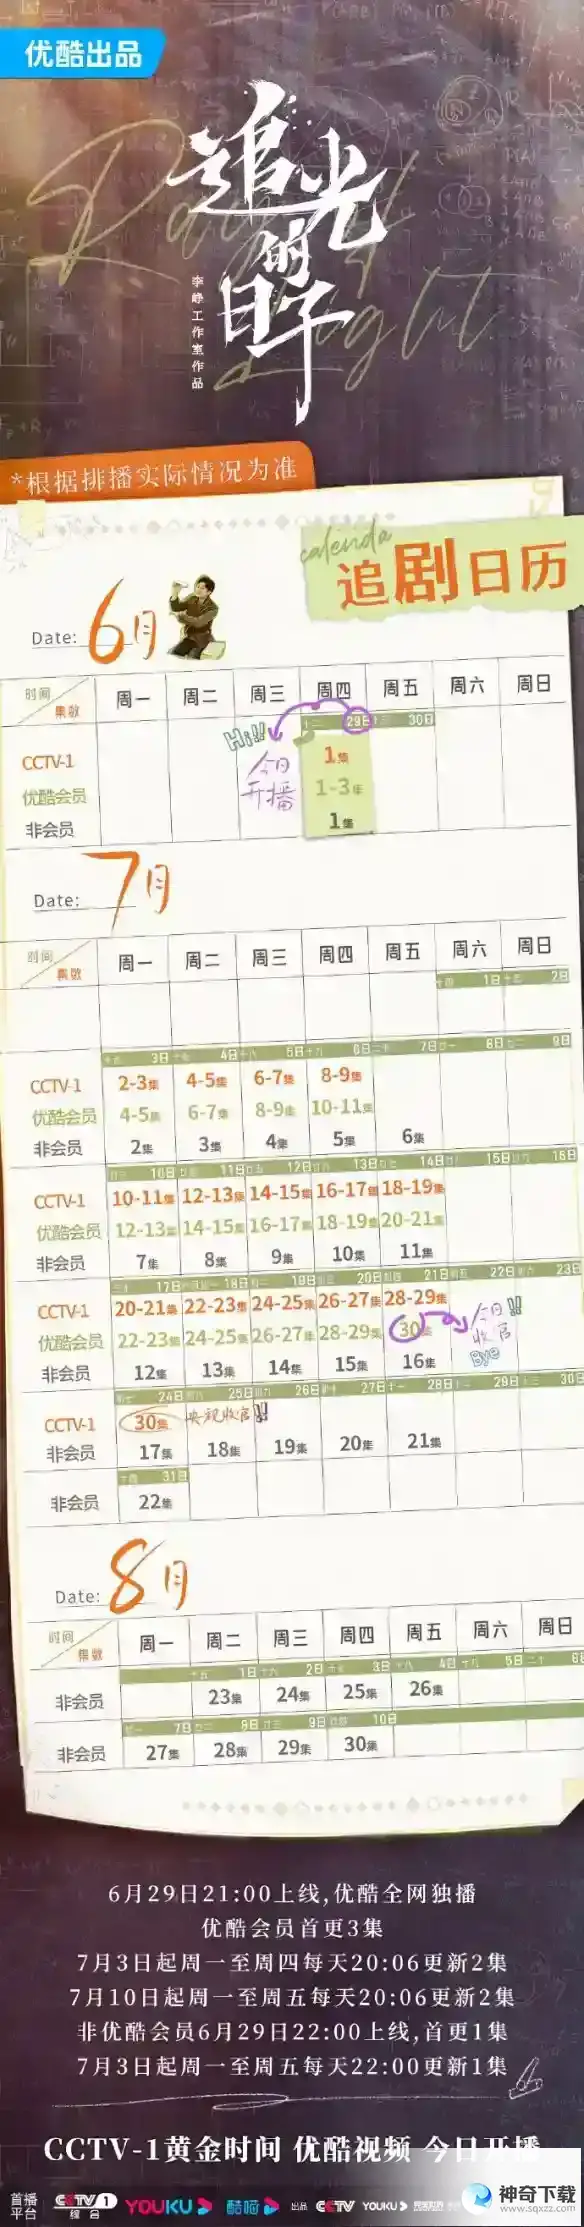 优酷出品
追光的日子
Ray of Light
李峥工作室作品
*根据排播实际情况为准
calenda
追剧日历
Date: 6月
时间 集数 周一 周二 周三 周四 周五 周六 周日
29日 30日
Hi!! 今日开播
CCTV-1 1集
优酷会员 1-3集
非会员 1集
Date: 7月
时间 集数 周一 周二 周三 周四 周五 周六 周日
1日 2日
3日 4日 5日 6日 7日 8日 9日
CCTV-1 2-3集 4-5集 6-7集 8-9集
优酷会员 4-5集 6-7集 8-9集 10-11集
非会员 2集 3集 4集 5集 6集
10日 11日 12日 13日 14日 15日 16日
CCTV-1 10-11集 12-13集 14-15集 16-17集 18-19集
优酷会员 12-13集 14-15集 16-17集 18-19集 20-21集
非会员 7集 8集 9集 10集 11集
17日 18日 19日 20日 21日 22日 23日
CCTV-1 20-21集 22-23集 24-25集 26-27集 28-29集
优酷会员 22-23集 24-25集 26-27集 28-29集 30集
今日收官!! Bye
非会员 12集 13集 14集 15集 16集
24日 25日 26日 27日 28日 29日 30日
CCTV-1 30集 央视收官!!
非会员 17集 18集 19集 20集 21集
31日
非会员 22集
Date: 8月
时间 集数 周一 周二 周三 周四 周五 周六 周日
1日 2日 3日 4日 5日 6日
非会员 23集 24集 25集 26集
7日 8日 9日 10日
非会员 27集 28集 29集 30集
6月29日21:00上线,优酷全网独播
优酷会员首更3集
7月3日起周一至周四每天20:06更新2集
7月10日起周一至周五每天20:06更新2集
非优酷会员6月29日22:00上线,首更1集
7月3日起周一至周五每天22:00更新1集
CCTV-1黄金时间 优酷视频 今日开播
首播平台 CCTV 1 综合 YOUKU 酷喵 出品 CCTV YOUKU
神奇下载
www.sqxzz.com